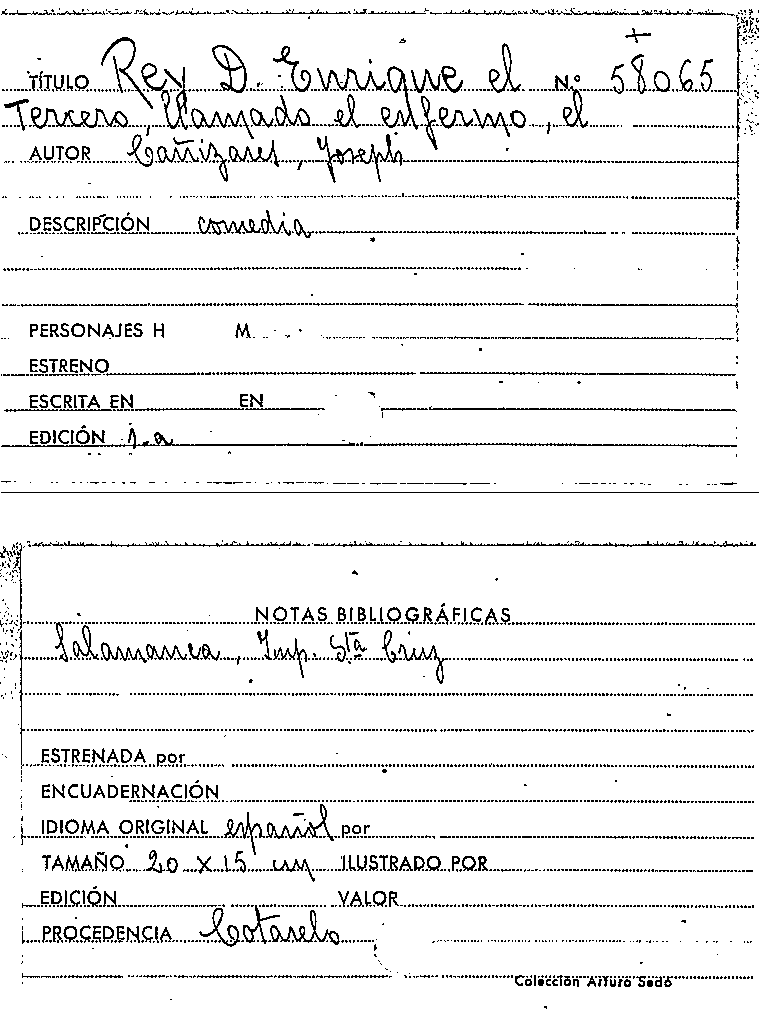 +
TÍTULO Rey D. Enrique el Nº 58065
Tercero, llamado el enfermo, el
AUTOR Cañizares, Joseph
DESCRIPCIÓN comedia
PERSONAJES H M.
ESTRENO
ESCRITA EN EN
EDICIÓN 1.a
NOTAS BIBLIOGRÁFICAS
Salamanca, Imp. Sta Cruz
ESTRENADA por
ENCUADERNACIÓN
IDIOMA ORIGINAL español por
TAMAÑO 20 x 15 cm ILUSTRADO POR
EDICIÓN VALOR
PROCEDENCIA Cotarelo
Colección Arturo Sedó